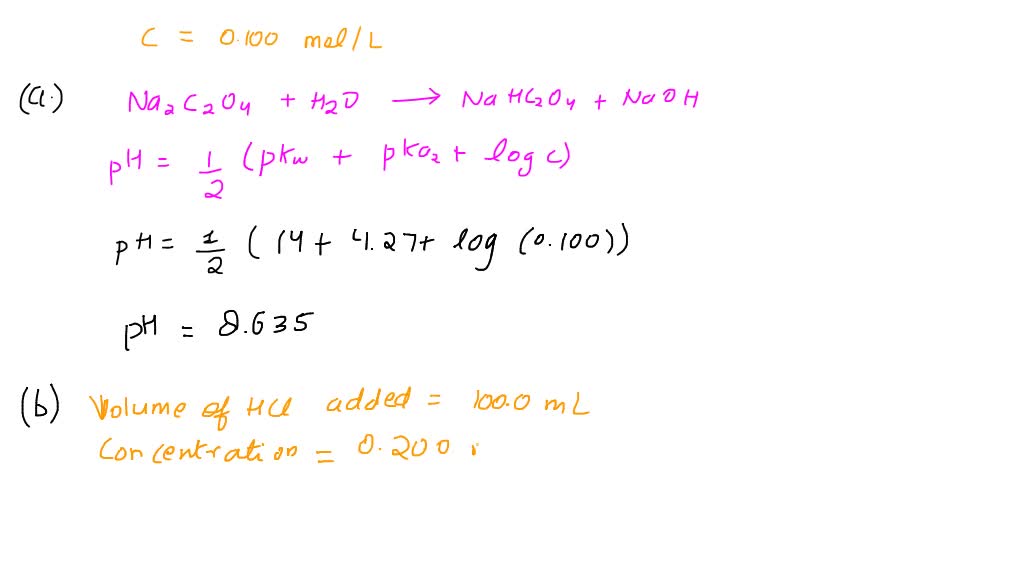 C = 0.100 mol/L
(a.) Na2C2O4 + H2O → NaHC2O4 + NaOH
pH = 1/2 (pKw + pKa2 + log c)
pH = 1/2 (14 + 4.27 + log (0.100))
pH = 8.635
(b) Volume of HCl added = 100.0 mL
Concentration = 0.200